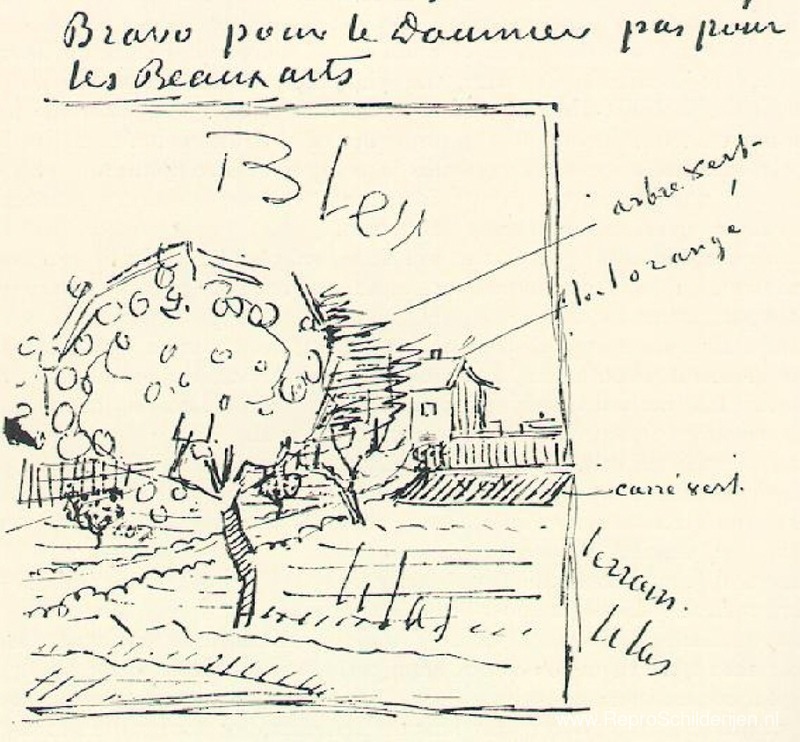 Bravo pour le Daumier pas pour
les Beaux arts
Bleu
arbre vert
toit orangé
carré vert.
terrain.
lilas
www.ReproSchilderijen.nl